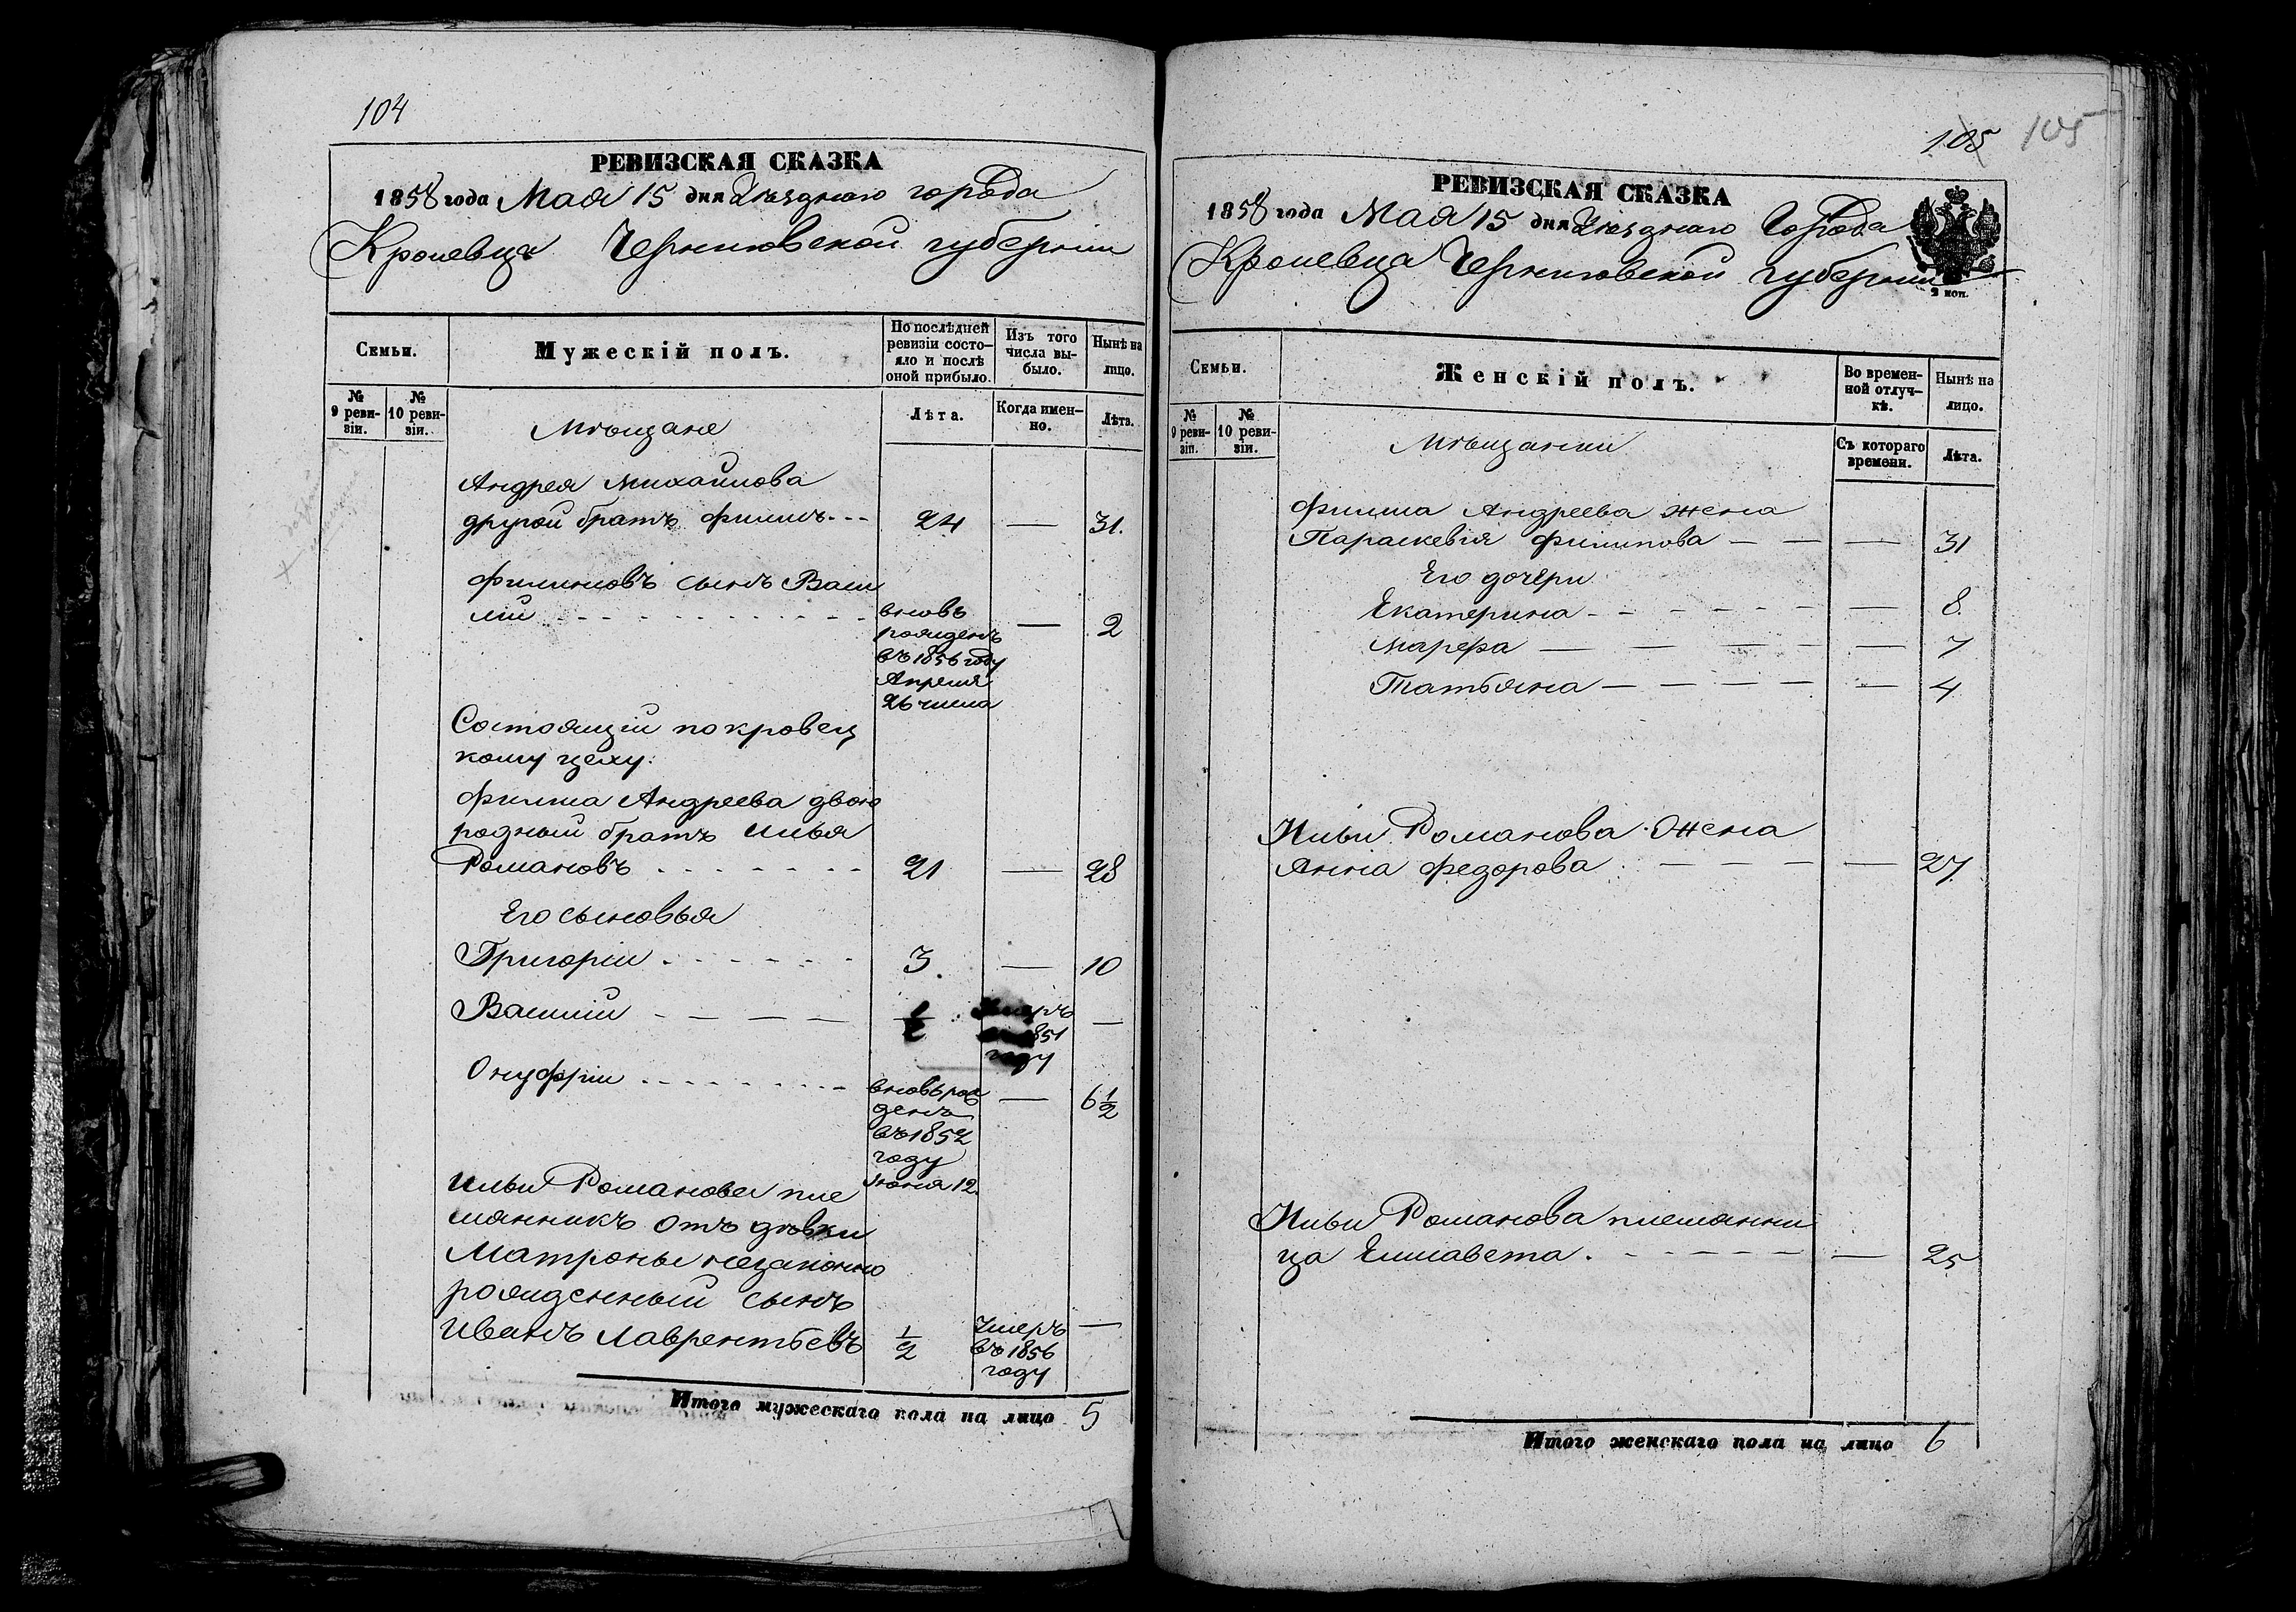 104
РЕВИЗСКАЯ СКАЗКА
1858 года Мая 15 дня Уѣзднаго города
Кролевца Черниговской губерніи
Семьи.
Мужескій полъ.
По послѣдней
ревизіи состо-
яло и послѣ
оной прибыло.
Изъ того
числа вы-
было.
Нынѣ на
лицо.
№
9 реви-
зіи.
№
10 реви-
зіи.
Лѣта.
Когда имен-
но.
Лѣта.
Мѣщане
Андрея Михайлова
другой братъ Филипъ 24 — 31.
Филиповъ сынъ Васи
лій вновь — 2
рожденъ
въ 1856 году
Апреля
26 числа
Состоящій по кровец
кому цеху.
Филипа Андреева двою
родный братъ Илья
Романовъ 21 — 28
Его сыновья
Григорій 3. — 10
Василій 1/2 Умеръ —
1851
году
Онуфрій вновь рож — 6 1/2
денъ
въ 1852
году
Июня 12.
Ильи Романова пле
мянникъ отъ дѣвки
Матроны незаконно
рожденный сынъ
Иванъ Лаврентьевъ 1/2 Умеръ —
въ 1856
году
Итого мужескаго пола на лицо 5
105 105
РЕВИЗСКАЯ СКАЗКА
1858 года Мая 15 дня Уѣзднаго Города
Кролевца Черниговской губерніи
2 коп.
Семьи.
Женскій полъ.
Во времен-
ной отлуч-
кѣ.
Нынѣ на
лицо.
№
9 реви-
зіи.
№
10 реви-
зіи.
Съ котораго
времени.
Лѣта.
Мѣщанки
Филипа Андреева жена
Параскевія Филипова — 31
Его дочери
Екатерина — 8.
Марефа — 7
Татьяна — 4
Ильи Романова Жена
Анна Федорова — 27
Ильи Романова племянни
ца Елисавета — 25
Итого женскаго пола на лицо 6